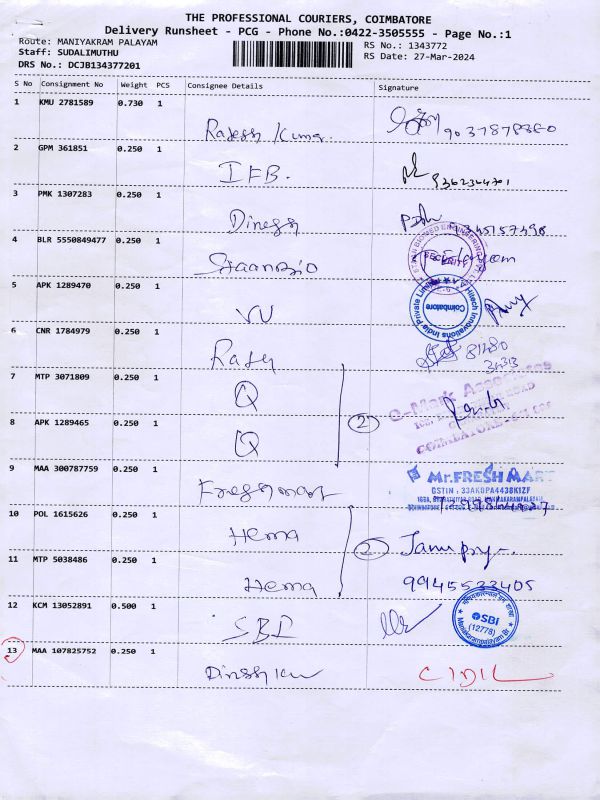 THE PROFESSIONAL COURIERS, COIMBATORE
Delivery Runsheet - PCG - Phone No.:0422-3505555 - Page No.:1
Route: MANIYAKRAM PALAYAM
RS No.: 1343772
Staff: SUDALIMUTHU
RS Date: 27-Mar-2024
DRS No.: DCJB134377201
S No Consignment No Weight PCS Consignee Details Signature
1 KMU 2781589 0.730 1
Rajesh Kumar 9037878380
2 GPM 361851 0.250 1
IFB. 9362364701
3 PMK 1307283 0.250 1
Dinesh
4 BLR 5550849477 0.250 1
5 APK 1289470 0.250 1
Hitech Innovations India Private Limited
Coimbatore
VU
6 CNR 1784979 0.250 1
7 MTP 3071809 0.250 1
Q
Q-Mark Associates
2
8 APK 1289465 0.250 1
Q
9 MAA 300787759 0.250 1
Mr.FRESH MART
GSTIN : 33AKGPA4438K1ZF
Freshmart
10 POL 1615626 0.250 1
Hema
2
11 MTP 5038486 0.250 1
Hema 9945523405
12 KCM 13052891 0.500 1
SBI
SBI
(12778)
13 MAA 107825752 0.250 1